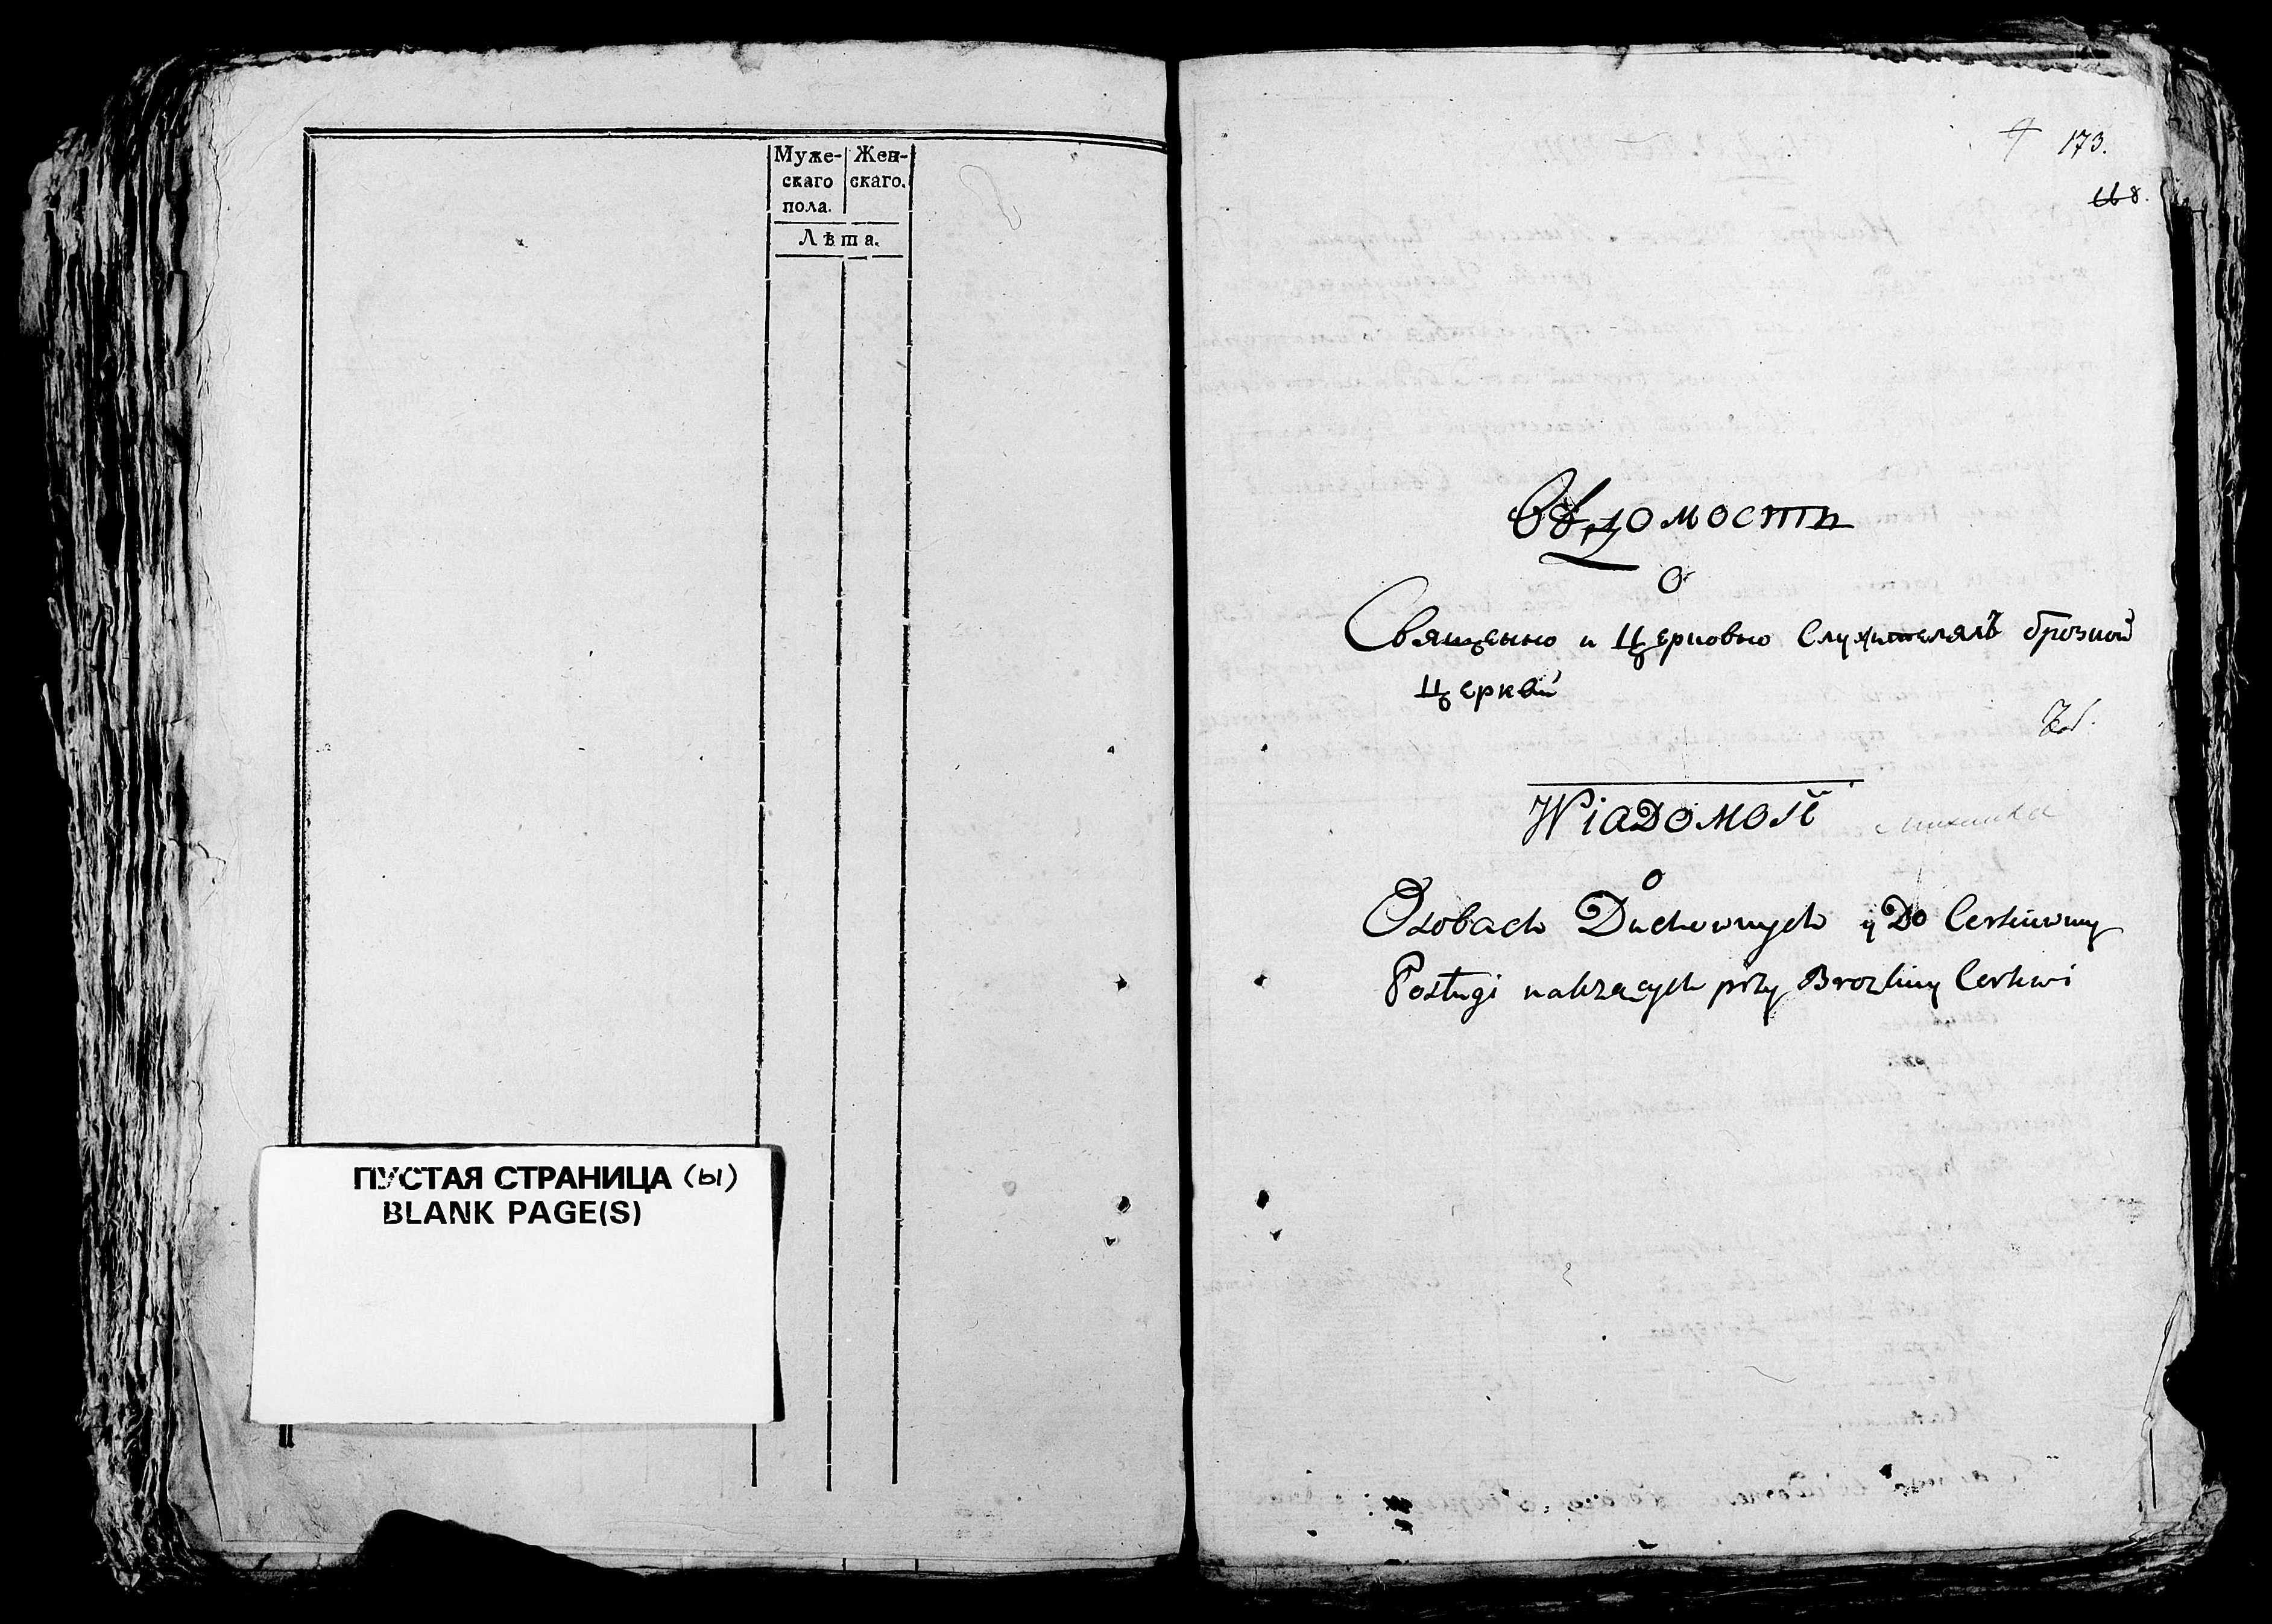 Муже- Жен-
скаго скаго.
пола.
Лѣта.
ПУСТАЯ СТРАНИЦА (ы)
BLANK PAGE(S)
173.
668.
Вѣдомости
О
Священно и Церковно Служителялъ брозкой
Церквй
WiaDOMOść
o
Osobach Duchownych y Do Cerkiewny
Posługi należących przy Brozkiny Cerkwi